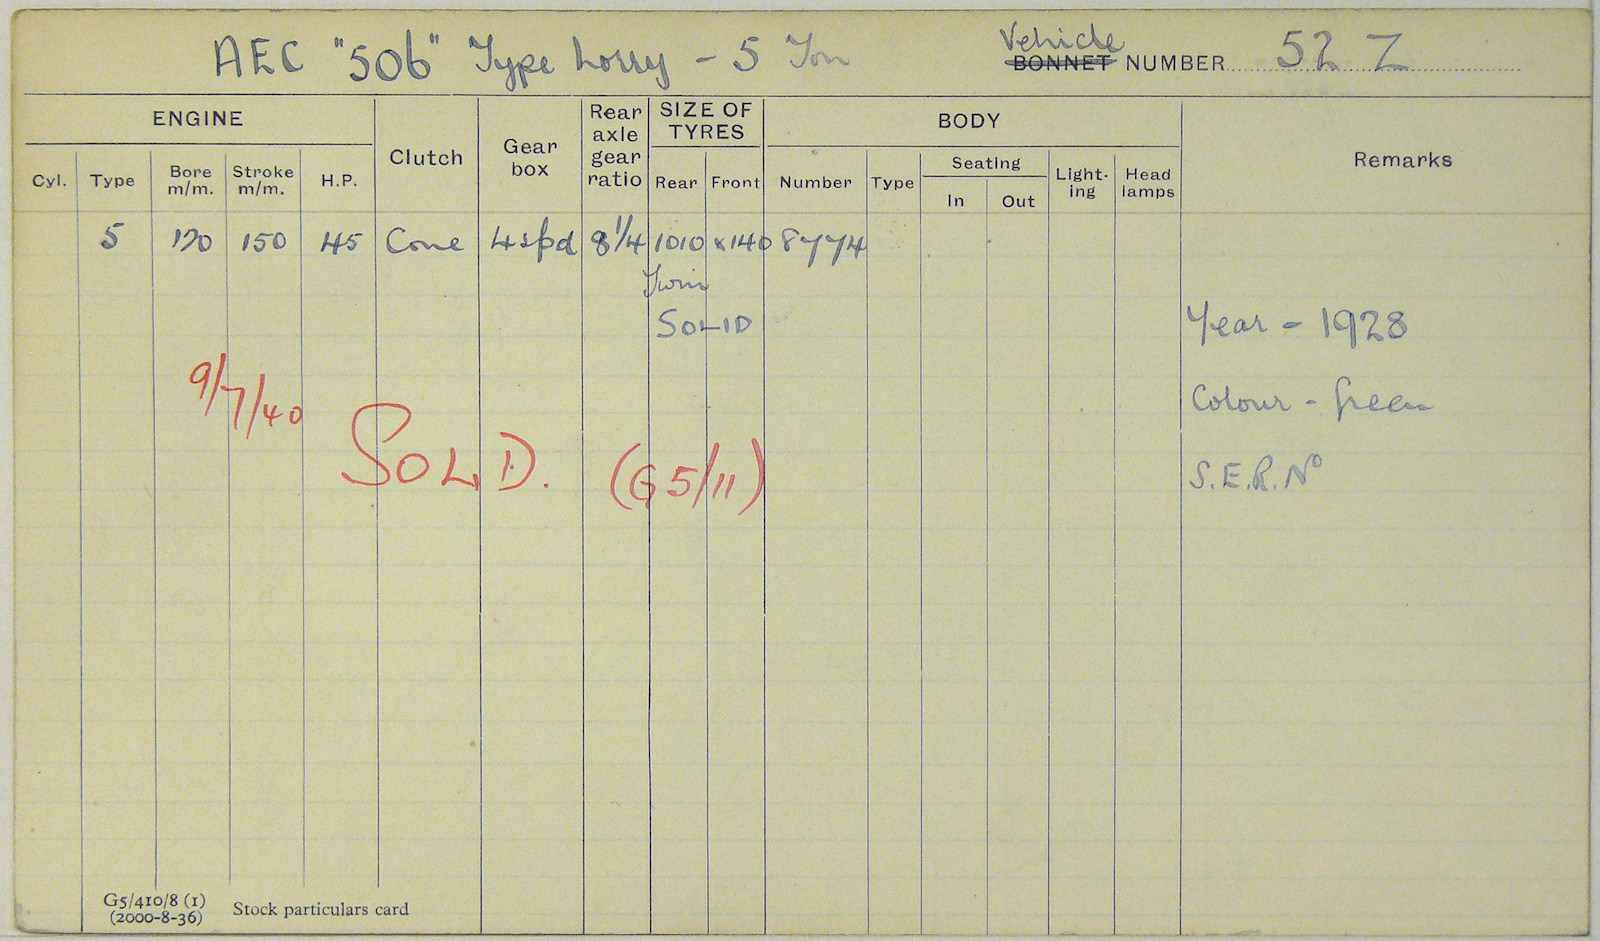 AEC "506" Type Lorry - 5 Ton
Vehicle
BONNET NUMBER 52 Z
ENGINE
Clutch
Gear box
Rear axle gear ratio
SIZE OF TYRES
BODY
Remarks
Cyl. Type Bore m/m. Stroke m/m. H.P.
Rear Front
Number Type Seating In Out Light-ing Head lamps
5 120 150 45 Cone 4 spd 8 1/4 1010 x 140 8774
Twin
SOLID
Year - 1928
9/7/40
Colour - Green
SOLD. (G5/11)
S.E.R. No
G5/410/8 (1)
(2000-8-36)
Stock particulars card